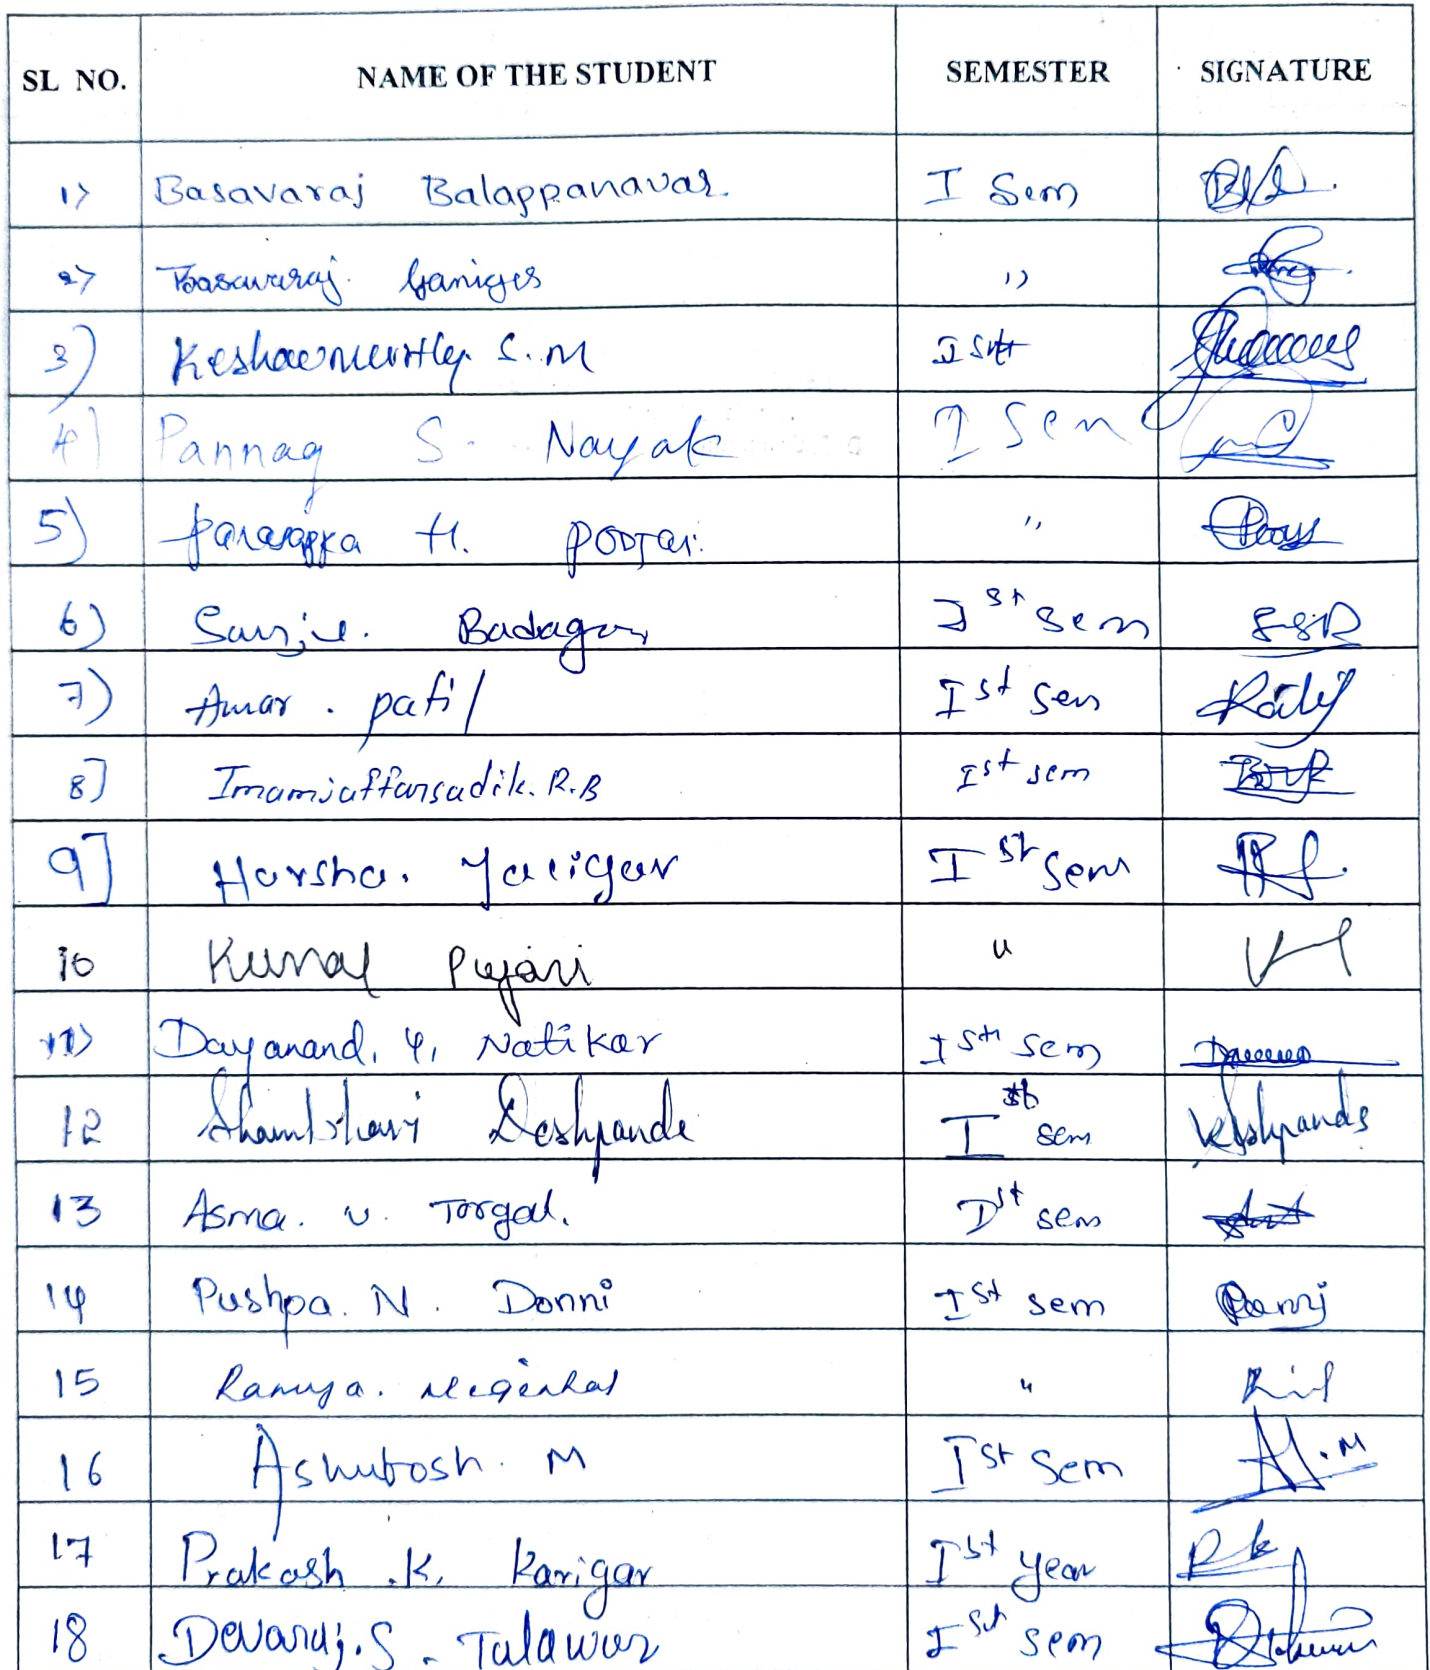 SL NO. NAME OF THE STUDENT SEMESTER SIGNATURE
1) Basavaraj Balappanavar. I Sem
2) Basavaraj. Ganiger ,,
3) Keshavmurthy S.M I
4) Pannag S. Nayak I Sem
5) H. POOJARI. ,,
6) Badagar Ist Sem SSB
7) Amar . patil Ist Sem Patil
8] Imamjaffarsadik. R.B Ist sem
9] Harsha. Yaligar Ist Sem
10 Kunal Pujari "
11) Dayanand. Y. Natikar Ist sem
12 Shambhavi Deshpande Ist sem Deshpande
13 Asma. U. Torgal. Ist sem
14 Pushpa. N. Donni Ist sem
15 Ramya. "
16 Ashutosh. M Ist Sem A.M
17 Prakash .K. Karigar Ist year PK
18 Devaraj. S. Talawar Ist sem